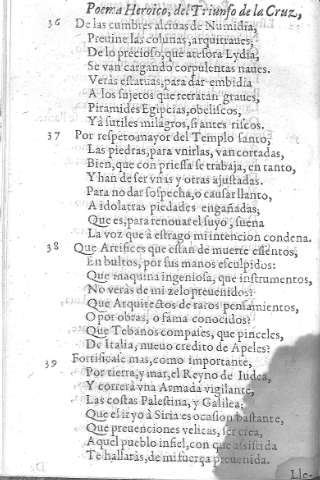 Poema Heroico, del Triunfo de la Cruz,
36 De las cumbres altiuas de Numidia,
Preuine las colunas, arquitraues;
De lo precioso, que atesora Lydia,
Se van cargando corpulentas naues.
Veras estatuas, para dar embidia
A los sujetos que retratan graues,
Piramides Egipcias, obeliscos,
Yà sutiles milagros, si antes riscos.
37 Por respeto mayor del Templo santo,
Las piedras, para vnirlas, van cortadas,
Bien, que con priessa se trabaja, en tanto,
Y han de ser vnas y otras ajustadas.
Para no dar sospecha, o causar llanto,
A idolatras piedades engañadas,
Que es, para renouar el suyo, suena
La voz que à estrago mi intencion condena.
38 Que Artifices que estan de muerte essentos,
En bultos, por sus manos esculpidos:
Que maquina ingeniosa, que instrumentos,
No veràs de mi zelo preuenidos?
Que Arquitectos de raros pensamientos,
O por obras, o fama conocidos?
Que Tebanos compases, que pinceles,
De Italia, nueuo credito de Apeles?
39 Fortificase mas, como importante,
Por tierra, y mar, el Reyno de Iudea,
Y correrà vna Armada vigilante,
Las costas Palestina, y Galilea,
Que el ir yo à Siria es ocasion bastante,
Que preuenciones velicas, ser crea,
Aquel pueblo infiel, con que assistida
Te hallaràs, de mi fuerça preuenida.